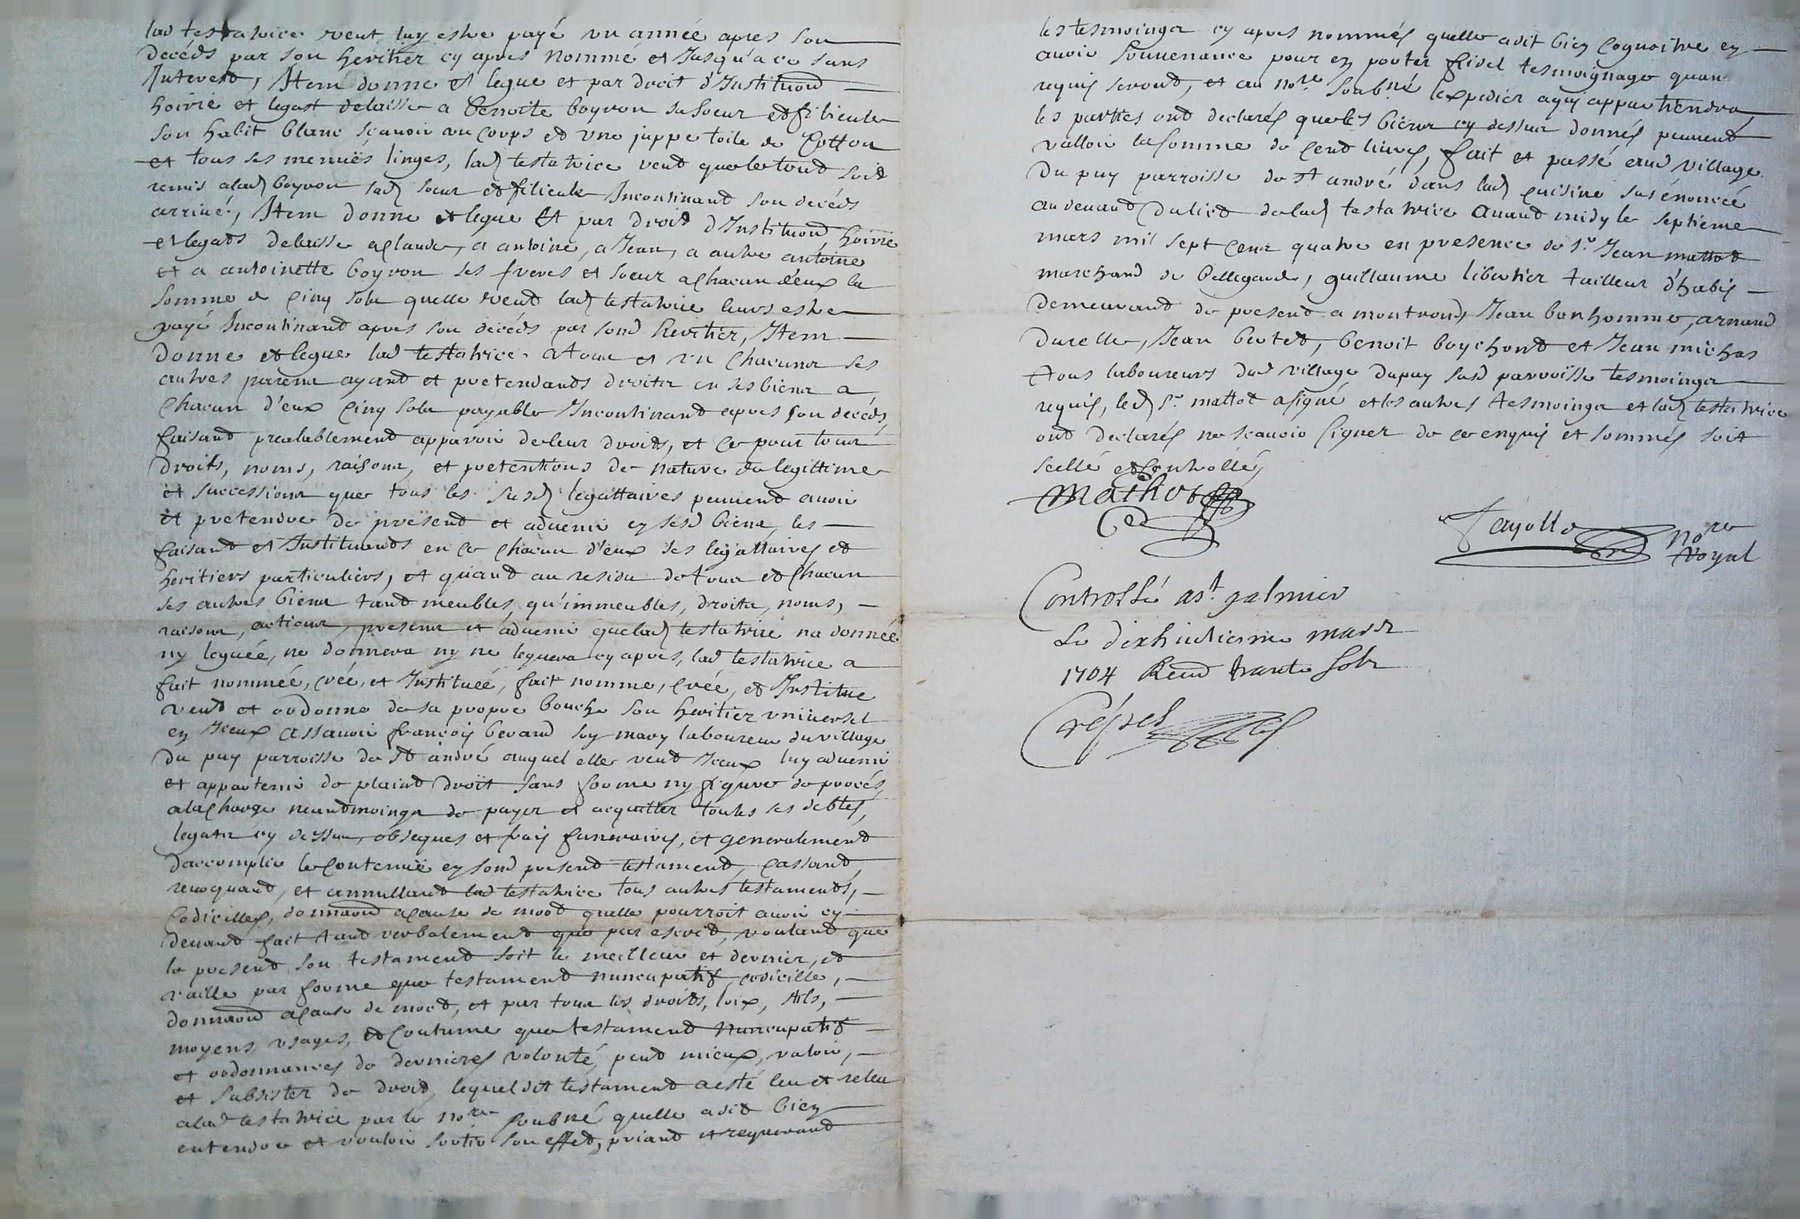 lad testatrice veut luy estre payé un année apres son
decéds par son heritier cy apres nommé et Jusqu'a ce sans
Interest, Item donne et legue et par droit d'Institution
hoirie et legast delaisse a benoite boyron sa soeur et filieule
son habit blanc scavoir un corps et une juppe toile de Cotton
et tous ses menuës linges, lad testatrice veut que le tout soit
remis alad boyron sad soeur et filieule Incontinant son decéds
arrivé, Item donne et legue et par droit d'Institution hoirie
et legats delaisse a glaude, a antoine, a Jean, a autre antoine
et a antoinette boyron ses freres et soeur a chacun d'eux la
somme de cinq sols quelle veut lad testatrice leurs estre
payé Incontinant apres son decéds par sond heritier, Item
donne et legue lad testatrice a tous et un chacuns ses
autres parens ayant et pretendants droits en ses biens a
chacun d'eux cinq sols payable Incontinant apres son decéds,
faisant prealablement apparoir de leur droits, et ce pour tous
droits, noms, raisons, et pretentions de nature de legittime
et successions que tous les susd legattaires peuvent avoir
et pretendre de présent et advenir en sesd biens, les
faisant et Instituants en ce chacun d'eux ses legattaires et
heritiers particuliers, et quand au residu de tous et chacun
ses autres biens tant meubles, qu'immeubles, droits, noms,
raisons, actions, presens et advenir que lad testatrice na donnée
ny leguée, ne donnera ny ne leguera cy apres, lad testatrice a
fait nommée, créé, et Instituéé, fait nomme, créé, et Institue
veut et ordonne de sa propre bouche son heritier universel
en Iceux assavoir françois berard son mary laboureur du village
du puy parroisse de St andré auquel elle veut Iceux luy advenir
et appartenir de plaint droit sans forme ny figure de procés,
a la charge neantmoings de payer et acquitter toutes ses debtes,
legats cy dessus, obseques et frais funeraires, et generalement
d'accomplir le contenuë en sond present testament, cassant,
revoquant, et annullant lad testatrice tous autres testaments,
codicilles, donnaon acause de mort quelle pourroit avoir cy
devant fait tant verbalement que par escrit, voulant que
le present son testament soit le meilleur et dernier, et
vaille par forme que testament nuncupatif, codicille,
donnaon acause de mort, et par tous les droits, loix, stils,
moyens, usages, et coutume que testament nuncupatif
et ordonnances de dernieres volonté peut mieux, valoir,
et subsister de droit, lequel dit testament a esté leu et releu
alad testatrice par le nore soubné quelle a dit bien
entendre et vouloir sortir son effet, priant et requerant
les tesmoings cy apres nommés quelle a dit bien cognoitre en
avoir souvenance pour en porter fidel tesmoignage quan
requis seront, et au nore soubné lexpedier a quy appartiendra,
les parties ont declarés que les biens cy dessus donnés peuvent
valloir la somme de cent livres, fait et passé aud village
du puy parroisse de St andré dans lad cuisine susénoncée
au devant du lict de lad testatrice avant midy le septieme
mars mil sept cens quatre en presence de sr Jean mattot
marchand de bellegarde, guillaume libertier tailleur d'habis
demeurant de present a montrond, Jean bonhomme, arnaud
durelle, Jean bertet, benoit boychond et Jean michas
tous laboureurs dud village du puy susd parroisse tesmoings
requis, led sr mattot a signé et les autres tesmoings et lad testatrice
ont declarés ne scavoir signer de ce enquis et sommés soit
scellé et controllé,
Mathot
Fayolle nore
royal
Controllé a st galmier
Le dixhuitieme mars
1704 Receu trante sols
Crépet